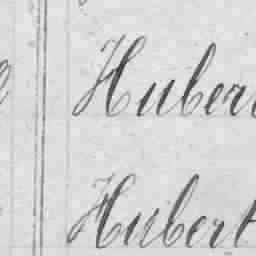 Huber
Hubert